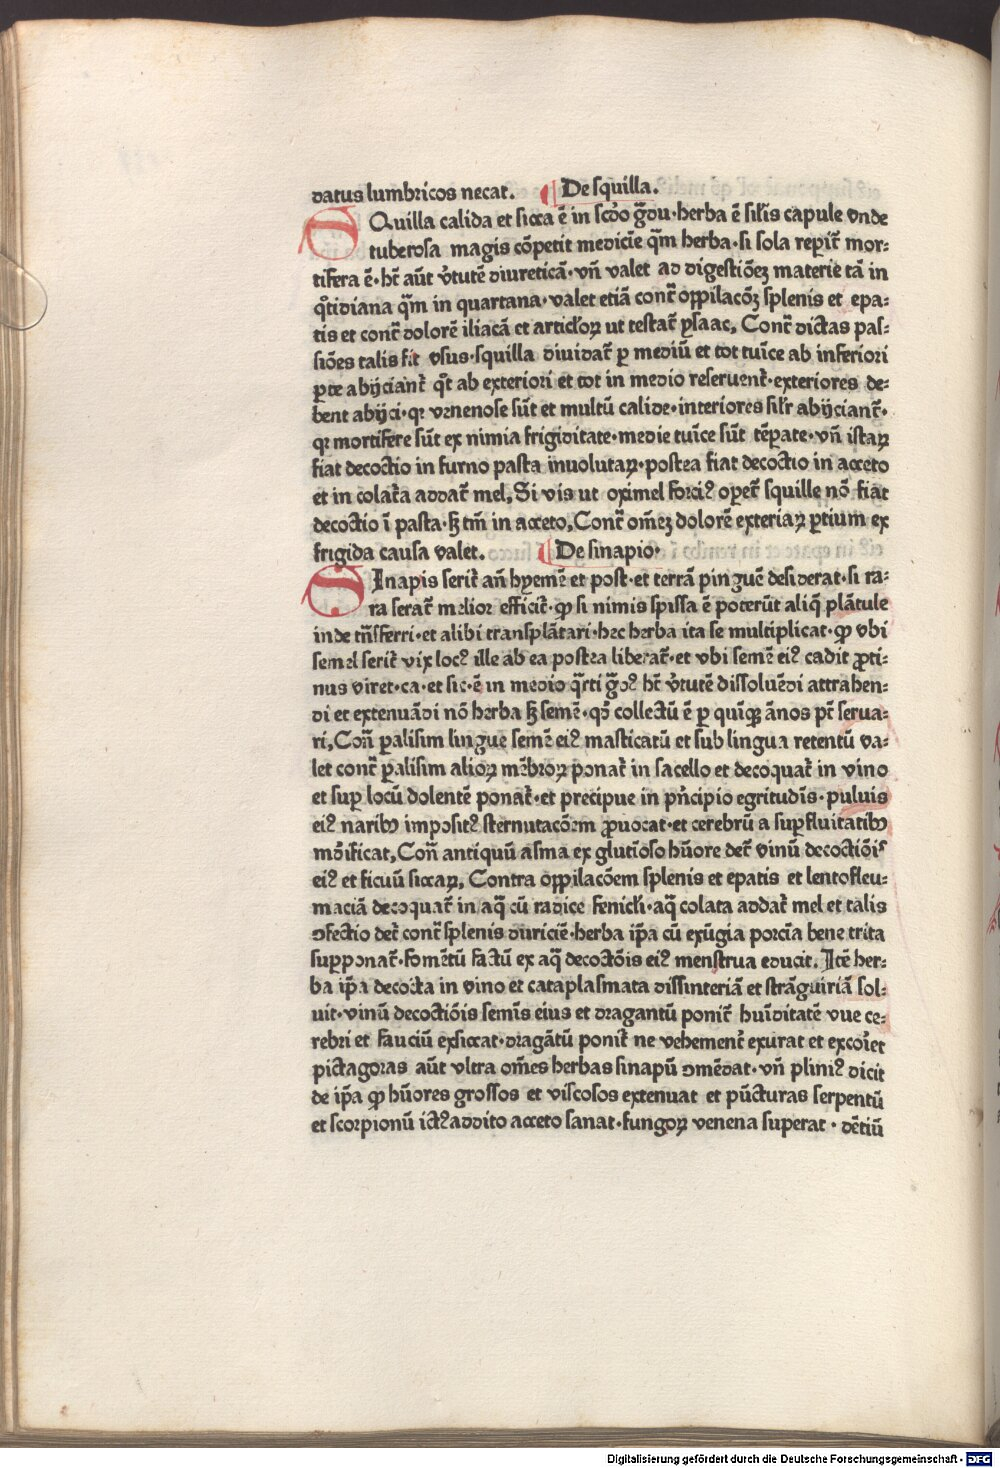 datus lumbricos necat. De squilla.
SQuilla calida et sicca ē in scďo g̃du·herba ē sil̃is capule vnde
tuberosa magis cōpetit medicīe q̃m herba·si sola reperit̃ mor⸗
tifera ē·hꝫ aūt v̓tutē diureticā·vn̄ valet ad digestiōeꝫ materie tā in
q̊tidiana q̃m in quartana·valet etiā cont̃ oppilacōꝫ splenis et epa⸗
tis et cont̃ dolorē iliacā et articl̓oꝝ ut testat̃ ysaac, Cont̃ dictas pas⸗
siōes talis fit vsus·squilla diuidat̃ ꝑ mediū et tot tuīce ab inferiori
ꝑte abijciant̃ qt̃ ab exteriori et tot in medio reseruent̃·exteriores de⸗
bent abijci·qꝛ venenose sūt et multū calide·interiores silr̃ abijciant̃·
qꝛ mortifere sūt ex nimia frigiditate·medie tuīce sūt tēꝑate·vn̄ istaꝝ
fiat decoctio in furno pasta inuolutaꝝ·postea fiat decoctio in acceto
et in colat̃a addat̃ mel, Si vis ut oximel forciꝰ oꝑet̃ squille nō fiat
decoctio ī pasta·sꝫ tm̄ in acceto, Cont̃ om̄eꝫ dolorē exteriaꝝ ꝑtium ex
frigida causa valet. De sinapio·
SInapis serit̃ an̄ hyemē et post·et terrā pinguē desiderat·si ra⸗
ra serat̃ melior efficit̃·ꝙ si nimis spissa ē poterūt aliq̃ plātule
inde tn̄sferri·et alibi transplātari·hec herba ita se multiplicat·ꝙ vbi
semel serit̃ vix locꝰ ille ab ea postea liberat̃·et vbi semē eiꝰ cadit ꝓti⸗
nus viret·ca·et sic·ē in medio q̃rti g̃dꝰ hꝫ v̓tutē dissoluēdi attrahen⸗
di et extenuādi nō herba sꝫ semē·qd̓ collectū ē ꝑ quīqꝫ ānos pt̃ serua⸗
ri, Con̄ ꝑalisim lingue semē eiꝰ masticatū et sub lingua retentū va⸗
let cont̃ ꝑalisim alioꝝ mēbroꝝ ponat̃ in sacello et decoquat̃ in vino
et suꝑ locū dolentē ponat̃·et precipue in pn̄cipio egritudīs·puluis
eiꝰ naribꝰ impositꝰ sternutacōem ꝓuocat·et cerebrū a suꝑfluitatibꝰ
mūdificat, Con̄ antiquū asma ex glutīoso hūore det̃ vinū decoctiōis
eiꝰ et ficuū siccaꝝ, Contra oppilacōem splenis et epatis et lentofleu⸗
maciā decoquat̃ in aq̃ cū radice fenicl̓i·aq̃ colata addat̃ mel et talis
ꝯfectio det̃ cont̃ splenis duriciē·herba ip̄a cū exūgia porcīa bene trita
supponat̃·fomētū factū ex aq̃ decoctōis eiꝰ menstrua educit. Itē her⸗
ba ip̄a decocta in vino et cataplasmata dissinteriā et strāguiriā sol⸗
uit·vinū decoctiōis semīs eius et dragantū ponit̃ huīditatē vue ce⸗
rebri et fauciū exsiccat·dragātū ponit̃ ne vehement̃ exurat et excoriet
pictagoras aūt vltra om̄es herbas sinapū ꝯmēdat·vn̄ pliniꝰ dicit
de ip̄a ꝙ hūores grossos et viscosos extenuat et pūcturas serpentū
et scorpionū ictꝰ addito acceto sanat·fungoꝝ venena superat·dētiū
Digitalisierung gefördert durch die Deutsche Forschungsgemeinschaft - DFG